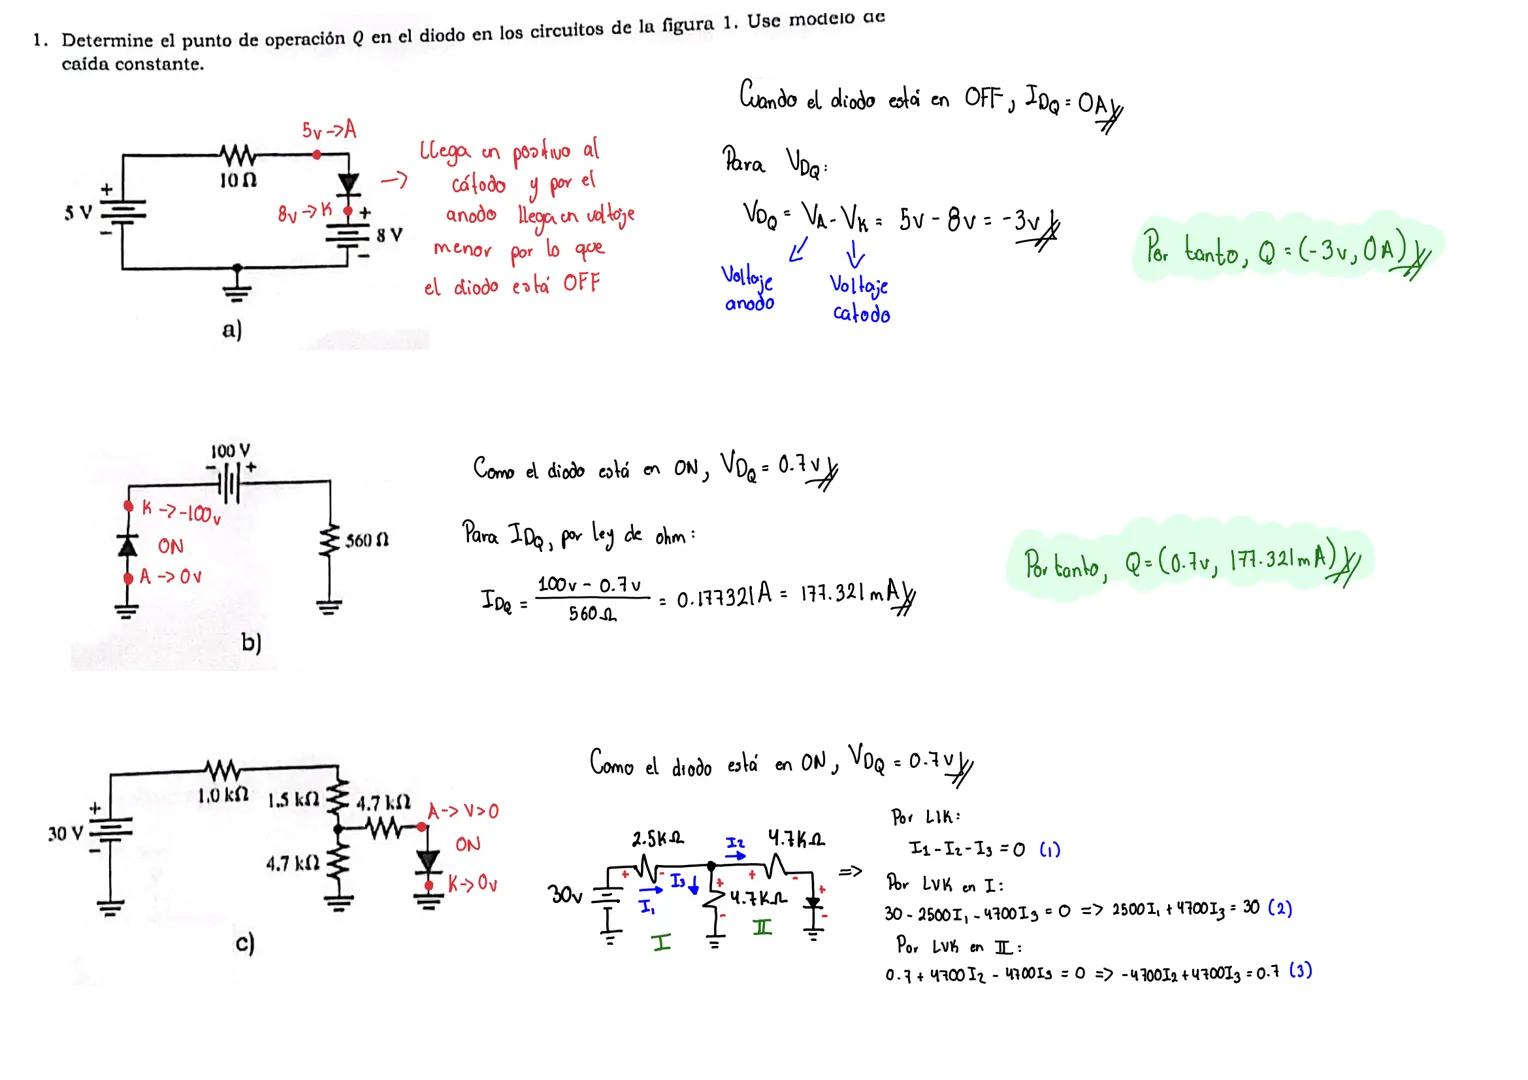 1. Determine el punto de operación Q en el diodo en los circuitos de la figura 1. Use modelo de
caída constante.
Cuando el diodo está en OFF, IDQ = 0A
5v->A
10 Ω
5 V
+
-
8v->K
+
8 V
-
a)
-> Llega un positivo al
cátodo y por el
anodo llega un voltaje
menor por lo que
el diodo está OFF
Para VDQ:
VDQ = VA - VK = 5v - 8v = -3v
Voltaje
anodo
Voltaje
catodo
Por tanto, Q = (-3v, 0A)
100 V
- +
K->-100v
ON
A->0v
560 Ω
b)
Como el diodo está en ON, VDQ = 0.7v
Para IDQ, por ley de ohm:
IDQ = 100v - 0.7v / 560Ω = 0.177321A = 177.321mA
Por tanto, Q = (0.7v, 177.321mA)
1.0 kΩ
1.5 kΩ
4.7 kΩ
A->V>0
30 V
+
-
ON
4.7 kΩ
K->0v
c)
Como el diodo está en ON, VDQ = 0.7v
2.5KΩ
I2
4.7KΩ
30v
+ -
I1
I3
+
4.7KΩ
-
+ -
+
-
I
II
=>
Por LIK:
I1 - I2 - I3 = 0 (1)
Por LVK en I:
30 - 2500I1 - 4700I3 = 0 => 2500I1 + 4700I3 = 30 (2)
Por LVK en II:
0.7 + 4700I2 - 4700I3 = 0 => -4700I2 + 4700I3 = 0.7 (3)